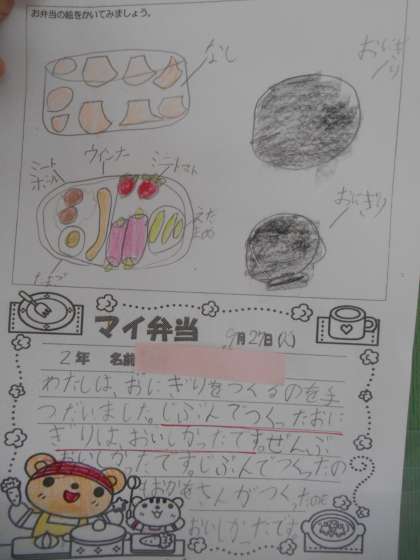 お弁当の絵をかいてみましょう。
なし
おにぎり
ミートボール
ウィンナー
ミニトマト
えだまめ
おにぎり
たまご
マイ弁当
9月27日(火)
2年 名前
わたしは、おにぎりをつくるのを手
つだいました。じぶんでつくったおに
ぎりは、おいしかったです。ぜんぶ
おいしかったです。じぶんでつくったの
おかあさんがつくったのも
おいしかったです。